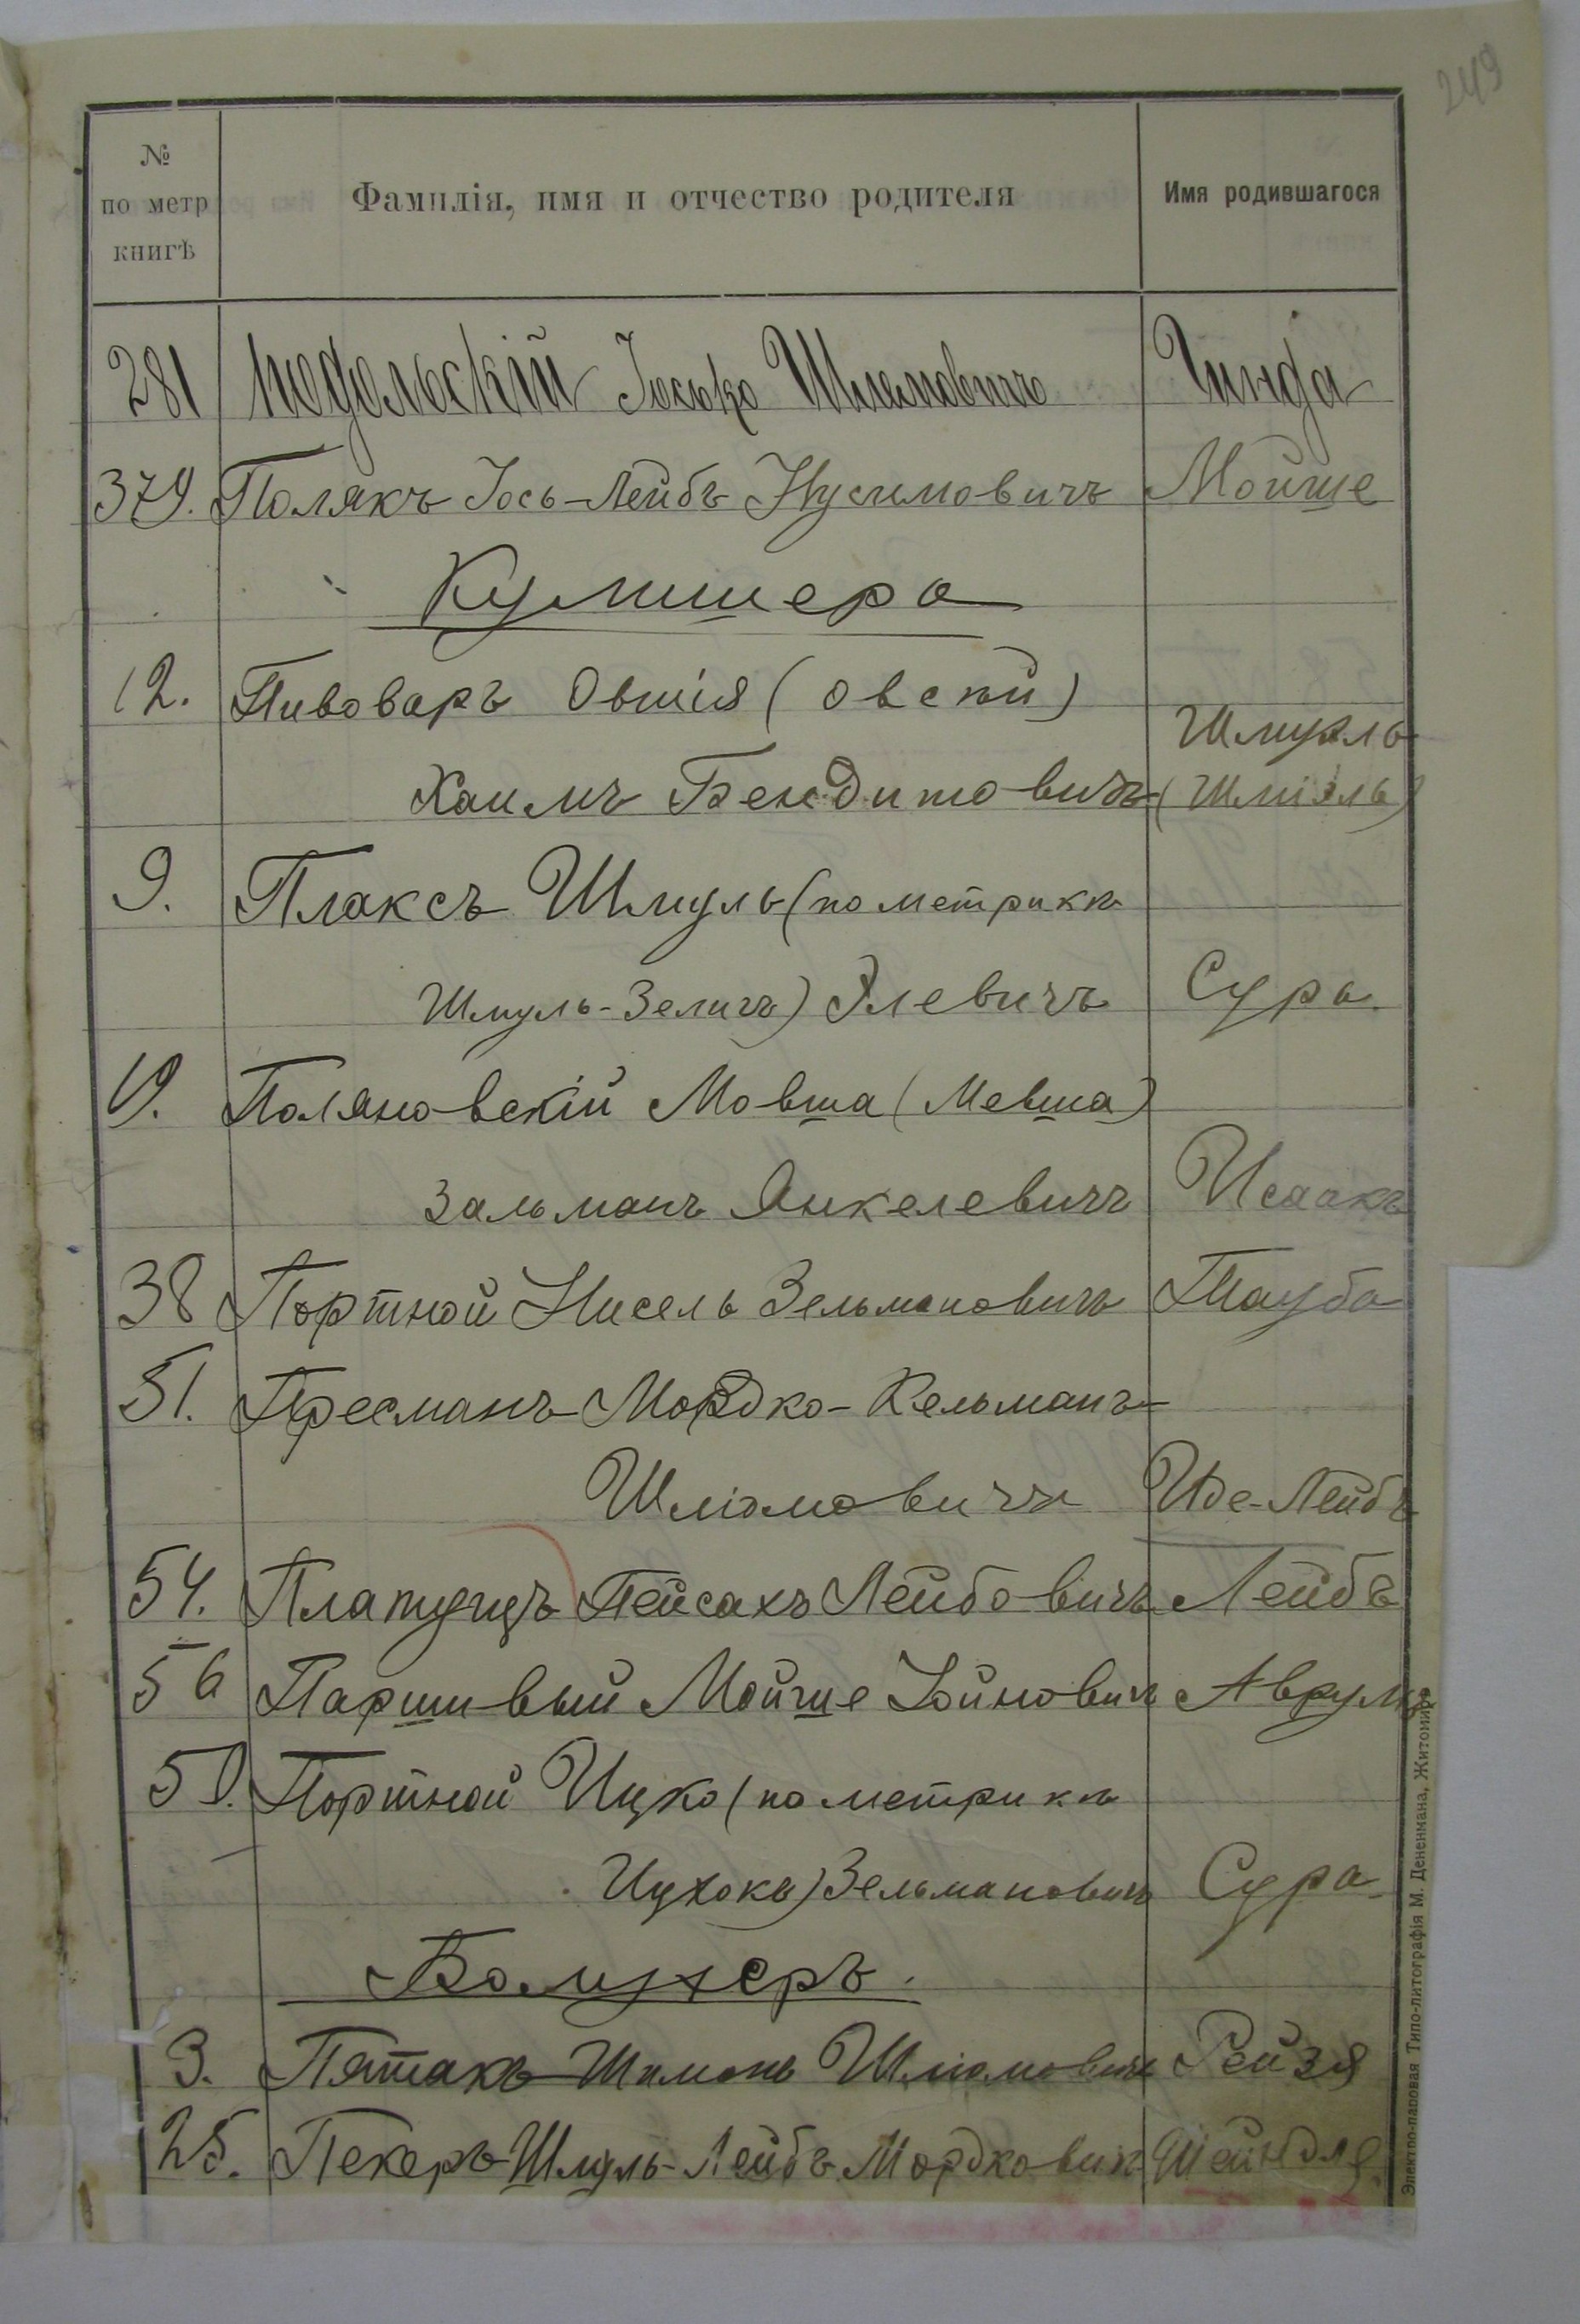 249
№ по метр книгѣ Фамилія, имя и отчество родителя Имя родившагося
281 Подольскій Іосько Шлемовичъ Гинда
379. Полякъ Іось-Лейбъ Нусимовичъ Мойше
Кулишера
12. Пивоваръ Овшія (овсѣй)
Шмуэль
Хаимъ Бендитовичъ (Шміэль)
9. Плаксъ Шмуль (по метрикѣ
Шмуль-Зеликъ) Элевичъ Сура.
19. Поляновскій Мовша (Мевша)
Зальманъ Янкелевичъ Исаакъ
38 Портной Нисель Зельмановичъ Тауба
51. Пресманъ Мордко-Кельманъ
Шліомовичъ Иде-Лейбъ
54. Плаптущъ Пейсахъ Лейбовичъ Лейбъ
56 Паршивый Мойше Іойнович Аврумъ
Портной Ицко (по метрикѣ
Ицхокъ) Зельмановичъ Сура
3. Пятакъ Шимонъ Шліомовичъ Рейзя
25. Пекеръ Шмуль-Лейбъ Мордкович Шейндля
Электро-паровая Типо-литографія М. Дененмана, Житомиръ